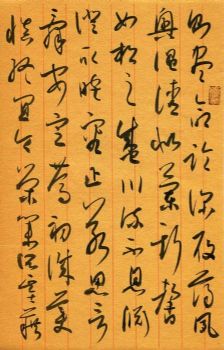 則盡命臨深履薄夙
興溫凊似蘭斯馨
如松之盛川流不息淵
澄取映容止若思言
辭安定篤初誠美
慎終宜令榮業所基藉